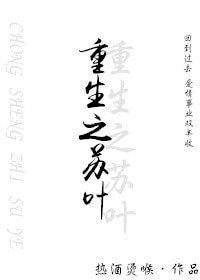 回到过去 爱情事业双丰收
重生之苏叶
重生之苏叶
CHONG SHENG ZHI SU YE
热酒烫喉·作品